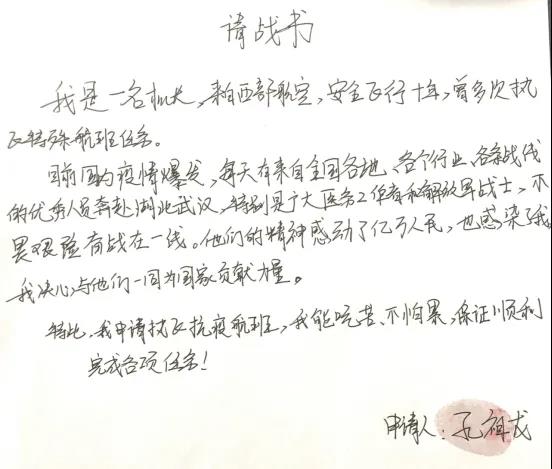 请战书
我是一名机长,来自西部航空,安全飞行十年,曾多次执
飞特殊航班任务。
目前国内疫情爆发,每天有来自全国各地、各个行业、各条战线
的优秀人员奔赴湖北武汉,特别是广大医务工作者和解放军战士,不
畏艰险奋战在一线。他们的精神感动了亿万人民,也感染了我
我决心与他们一同为国家贡献力量。
特此,我申请执飞抗疫航班,我能吃苦、不怕累,保证顺利
完成各项任务!
申请人:孔祖龙